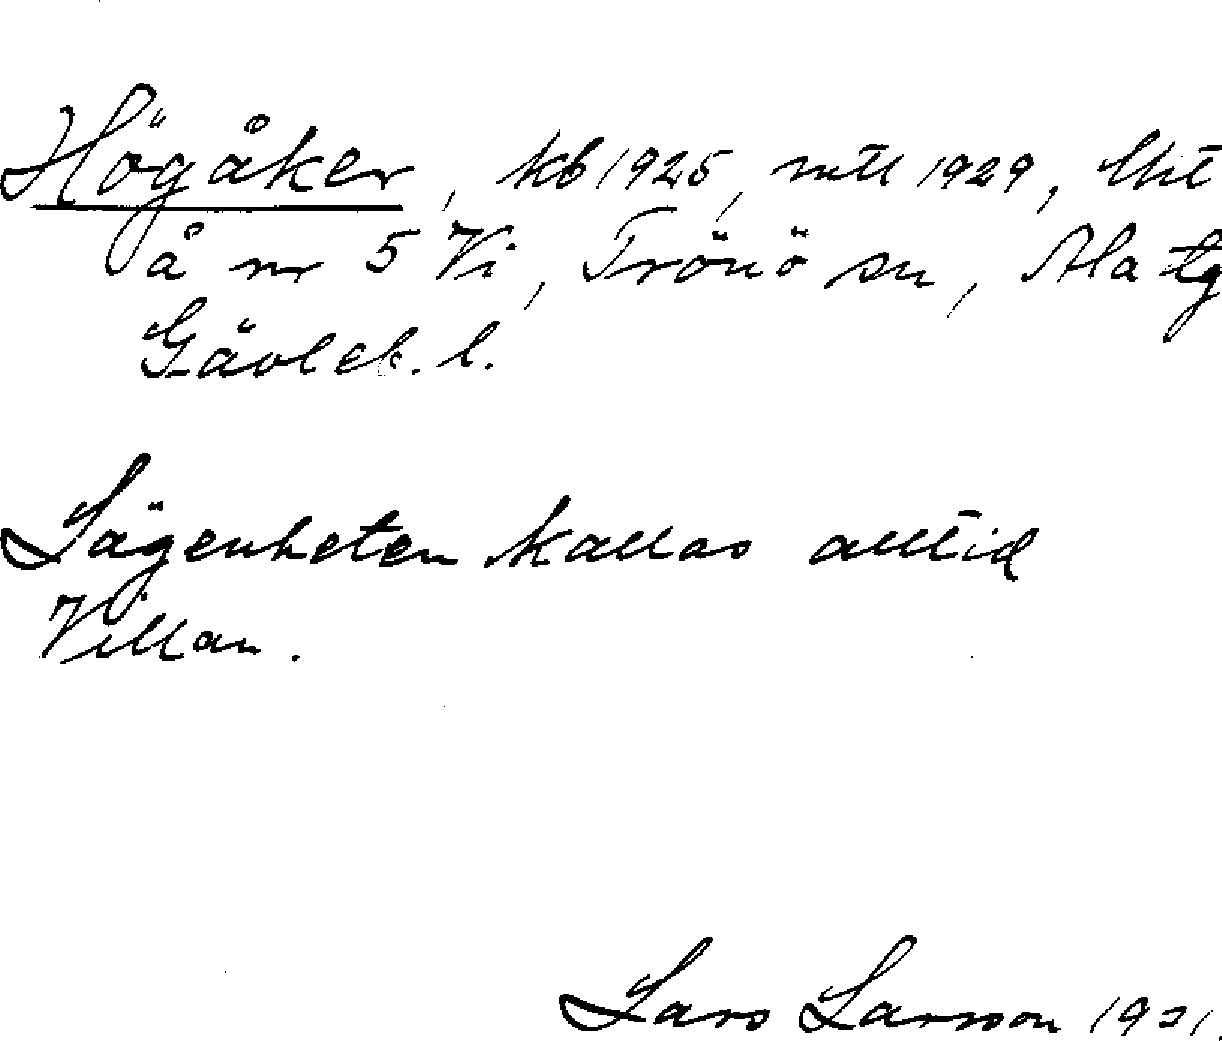 Högåker, kb 1925, mtl 1929, lht
å nr 5 Vi, Trönö sn, Ala tg
Gävleb. l.
Lägenheten kallas alltid
Villan.
Lars Larsson 1931.